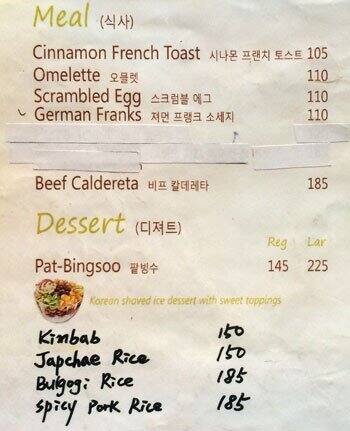 Meal (식사)
Cinnamon French Toast 시나몬 프랜치 토스트 105
Omelette 오믈렛 110
Scrambled Egg 스크럼블 에그 110
German Franks 져먼 프랭크 소세지 110
Beef Caldereta 비프 칼데레타 185
Dessert (디져트)
Reg Lar
Pat-Bingsoo 팥빙수 145 225
Korean shaved ice dessert with sweet toppings
Kimbab 150
Japchae Rice 150
Bulgogi Rice 185
Spicy Pork Rice 185